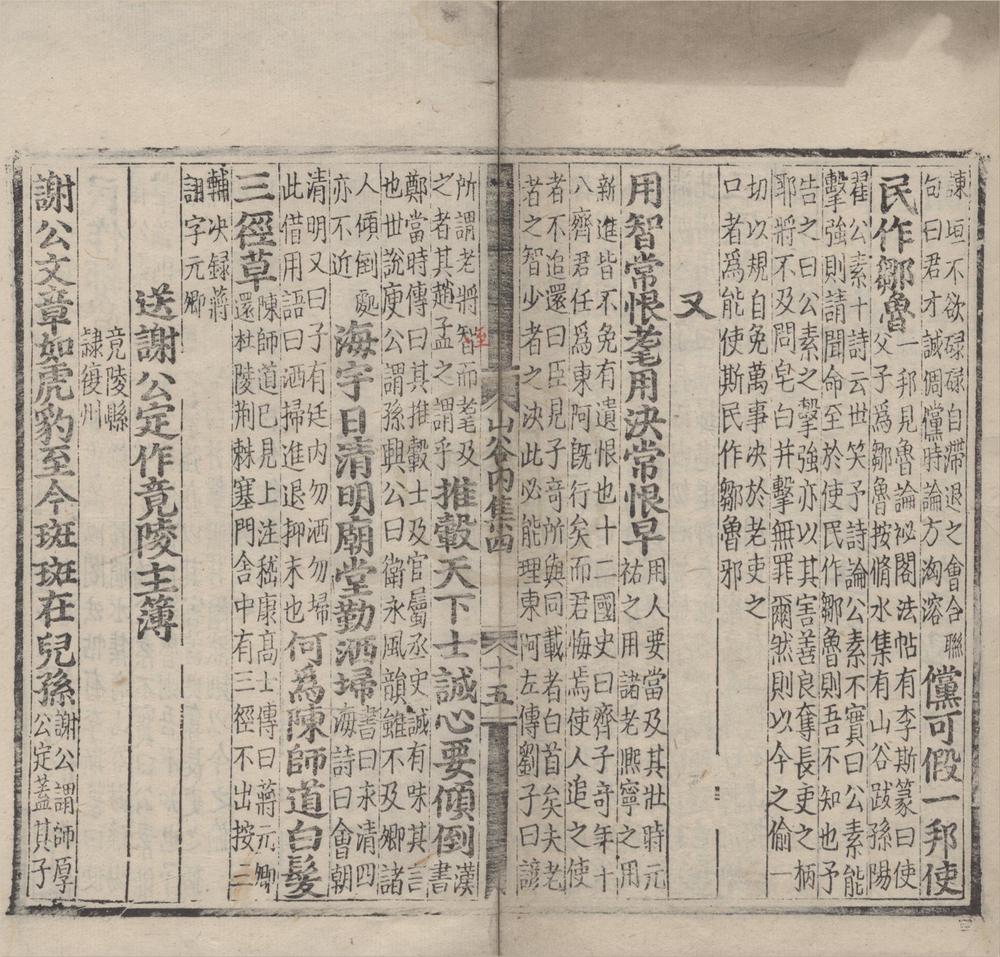 諫垣不欲碌碌自滯退之會合聯
句曰君才誠倜儻時論方洶溶
儻可假一邦使
民作鄒魯
一邦見魯論祕閣法帖有李斯篆曰使
父子爲鄒魯按脩水集有山谷跋孫陽
翟公素十詩云世笑予詩論公素不實曰公素能
擊強則請聞命至於使民作鄒魯則吾不知也予
告之曰公素之擊強亦以其害善良奪長吏之柄
耶將不及問皂白并擊無罪爾然則以今之偷一
切以規自免萬事決於老吏之
口者爲能使斯民作鄒魯邪
又
用智常恨耄用決常恨早
用人要當及其壯時元
祐之用諸老熈寧之用
新進皆不免有遺恨也十二國史曰齊子竒年十
八齊君任爲東阿旣行矣而君悔焉使人追之使
者不追還曰臣見子竒所與同載者白首矣夫老
者之智少者之決此必能理東阿左傳劉子曰諺
山谷内集四
十五
所謂老將智而耄及
之者其趙孟之謂乎
推轂天下士誠心要傾倒
漢書
鄭當時傳曰其推轂士及官屬丞史誠有味其言
也世說庾公謂孫興公曰衛永風韻雖不及卿諸
人傾倒處
亦不近
海宇日清明廟堂勤洒埽
書曰来清四
海詩曰會朝
清明又曰子有廷内勿洒勿埽
此借用語曰洒掃進退抑末也
何爲陳師道白髮
三徑草
陳師道已見上注嵇康髙士傳曰蔣元卿
還杜陵荆棘塞門舎中有三徑不出按三
輔决録蔣
詡字元卿
送謝公定作竟陵主簿
竟陵縣
隷復州
謝公文章如虎豹至今斑斑在兒孫
謝公謂師厚
公定蓋其子